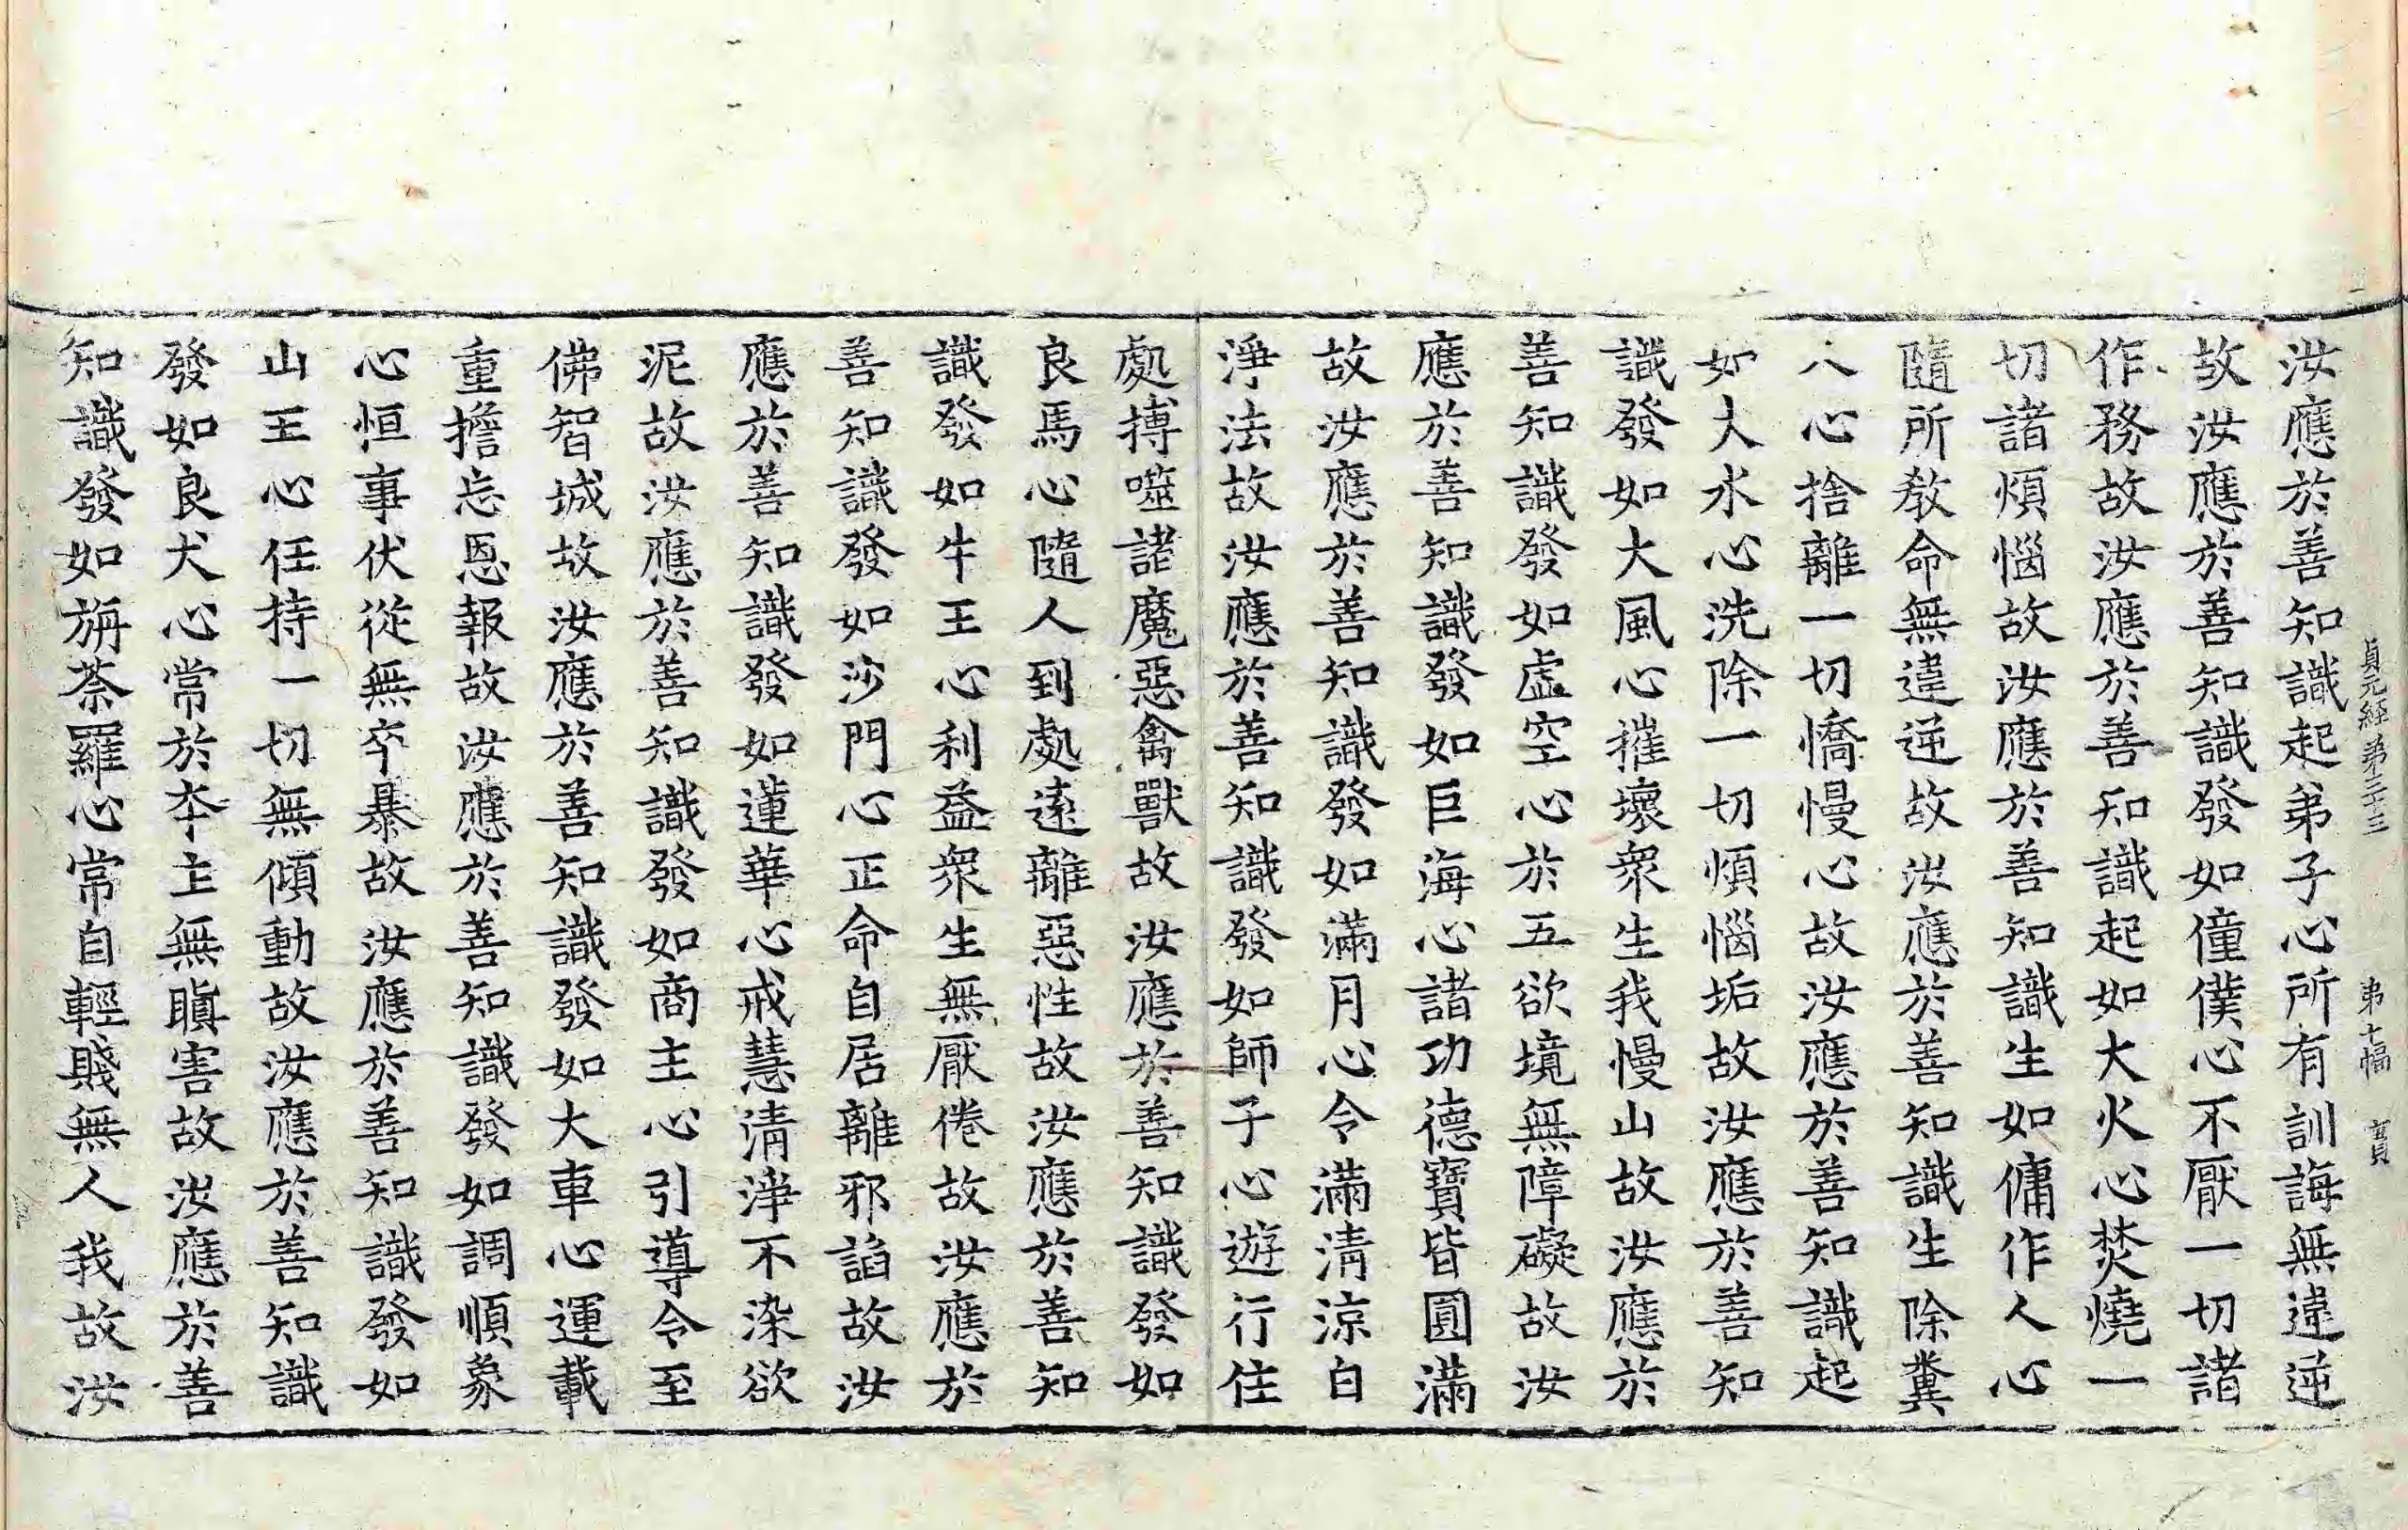 貞元經第三十三　第七幅　實
汝應於善知識起弟子心所有訓誨無違逆
故汝應於善知識發如僮僕心不厭一切諸
作務故汝應於善知識起如大火心焚燒一
切諸煩惱故汝應於善知識生如傭作人心
隨所教命無違逆故汝應於善知識生除糞
人心捨離一切憍慢心故汝應於善知識起
如大水心洗除一切煩惱垢故汝應於善知
識發如大風心摧壞衆生我慢山故汝應於
善知識發如虛空心於五欲境無障礙故汝
應於善知識發如巨海心諸功德寶皆圓滿
故汝應於善知識發如滿月心令滿清涼白
淨法故汝應於善知識發如師子心遊行住
處搏噬諸魔惡禽獸故汝應於善知識發如
良馬心隨人到處遠離惡性故汝應於善知
識發如牛王心利益衆生無厭倦故汝應於
善知識發如沙門心正命自居離邪諂故汝
應於善知識發如蓮華心戒慧清淨不染欲
泥故汝應於善知識發如商主心引導令至
佛智城故汝應於善知識發如大車心運載
重擔忘恩報故汝應於善知識發如調順象
心恒事伏從無卒暴故汝應於善知識發如
山王心任持一切無傾動故汝應於善知識
發如良犬心常於本主無瞋害故汝應於善
知識發如旃荼羅心常自輕賤無人我故汝